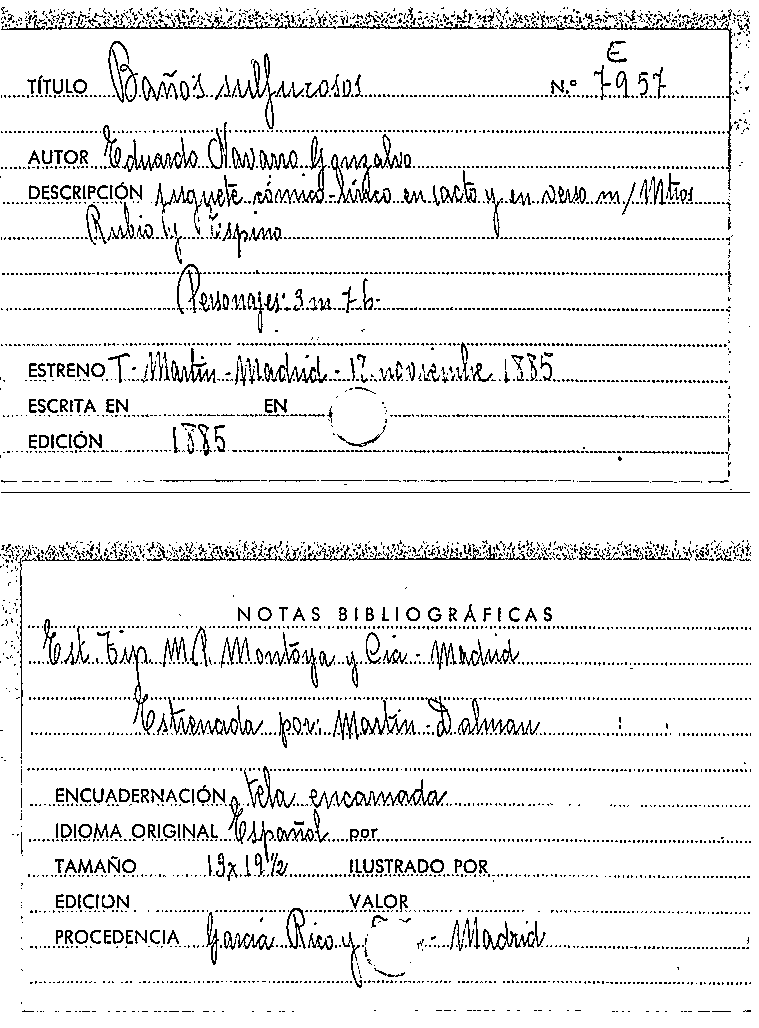 E
TÍTULO Baños sulfurosos N.º 7957
AUTOR Eduardo Navarro Gonzalvo
DESCRIPCIÓN juguete cómico-lírico en 1 acto y en verso m/Mtros
Rubio y Espino
Personajes: 3 m 7 h.
ESTRENO T. Martín - Madrid - 17 noviembre 1885
ESCRITA EN EN
EDICIÓN 1885
NOTAS BIBLIOGRÁFICAS
Est. Tip. M.P. Montoya y Cía - Madrid
Estrenada por: Martín - Dalmau
ENCUADERNACIÓN tela encarnada
IDIOMA ORIGINAL Español por
TAMAÑO 13 x 19 1/2 ILUSTRADO POR
EDICION VALOR
PROCEDENCIA García Rico y - Madrid